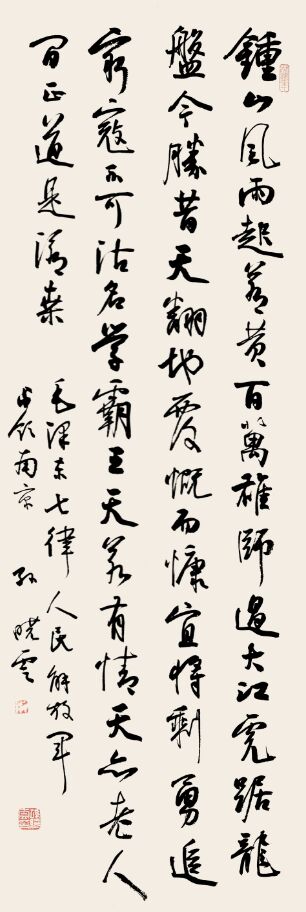 鍾山風雨起蒼黄百萬雄師過大江虎踞龍
盤今勝昔天翻地覆慨而慷宜將剩勇追
窮寇不可沽名学霸王天若有情天亦老人
間正道是滄桑
毛澤東七律人民解放軍
占領南京 孫曉雲